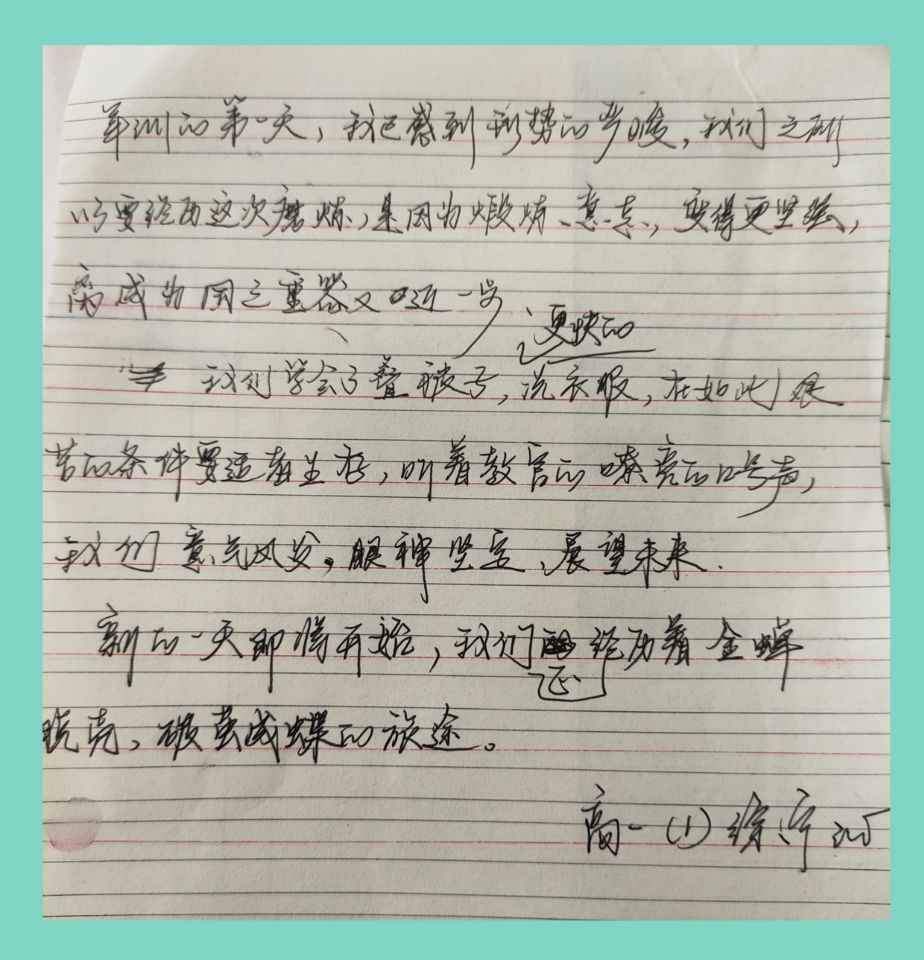 军训的第一天，我已感到形势的岁峻，我们之所
以要经历这次磨炼，是因为煅炼、意志，变得更坚强，
离成为国之重器又口近一步
更快的
我们学会了叠被子，洗衣服，在如此艰
苦的条件要适者生存，听着教官的嘹亮的口号声，
我们意气风发。眼神坚定、展望未来.
新的一天即将开始，我们正经历着金蝉
脱壳，破茧成蝶的旅途。
高一(1)